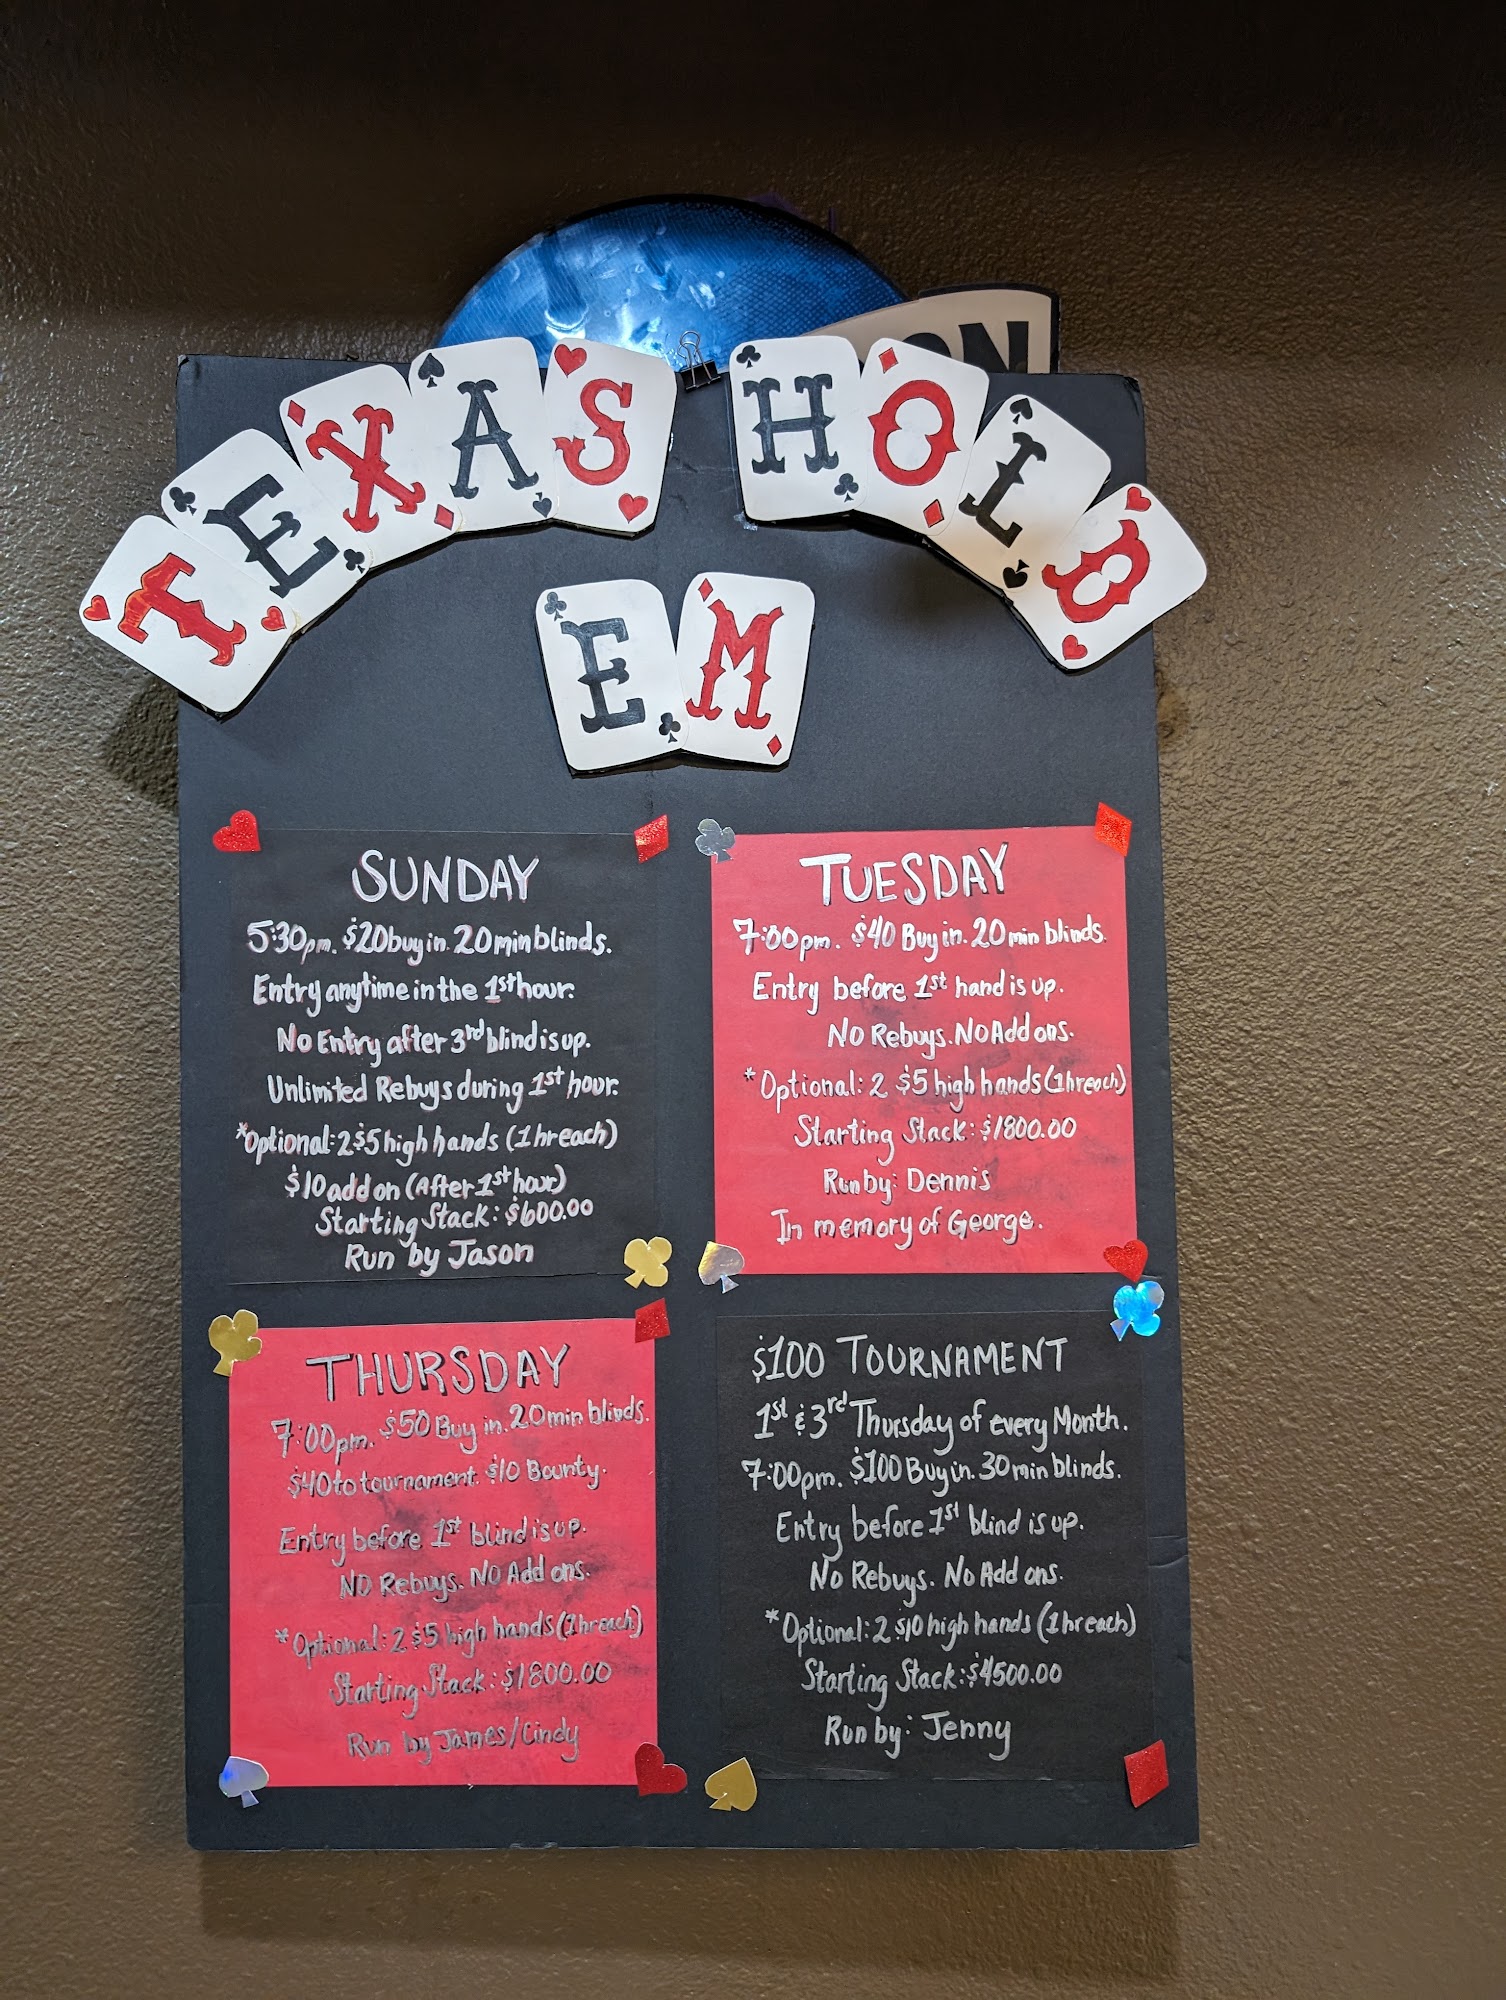 ON
TEXAS HOLD
EM
SUNDAY
5:30pm. $20 buy in. 20 min blinds.
Entry anytime in the 1st hour.
No Entry after 3rd blind is up.
Unlimited Rebuys during 1st hour.
*Optional: 2 $5 high hands (1 hr each)
$10 add on (After 1st hour)
Starting Stack: $600.00
Run by Jason
TUESDAY
7:00pm. $40 Buy in. 20 min blinds.
Entry before 1st hand is up.
No Rebuys. No Add ons.
*Optional: 2 $5 high hands (1 hr each)
Starting Stack: $1800.00
Run by: Dennis
In memory of George.
THURSDAY
7:00pm. $50 Buy in. 20 min blinds.
$40 to tournament. $10 Bounty.
Entry before 1st blind is up.
No Rebuys. No Add ons.
*Optional: 2 $5 high hands (1 hr each)
Starting Stack: $1800.00
Run by James/Cindy
$100 TOURNAMENT
1st & 3rd Thursday of every Month.
7:00pm. $100 Buy in. 30 min blinds.
Entry before 1st blind is up.
No Rebuys. No Add ons.
*Optional: 2 $10 high hands (1 hr each)
Starting Stack: $4500.00
Run by: Jenny